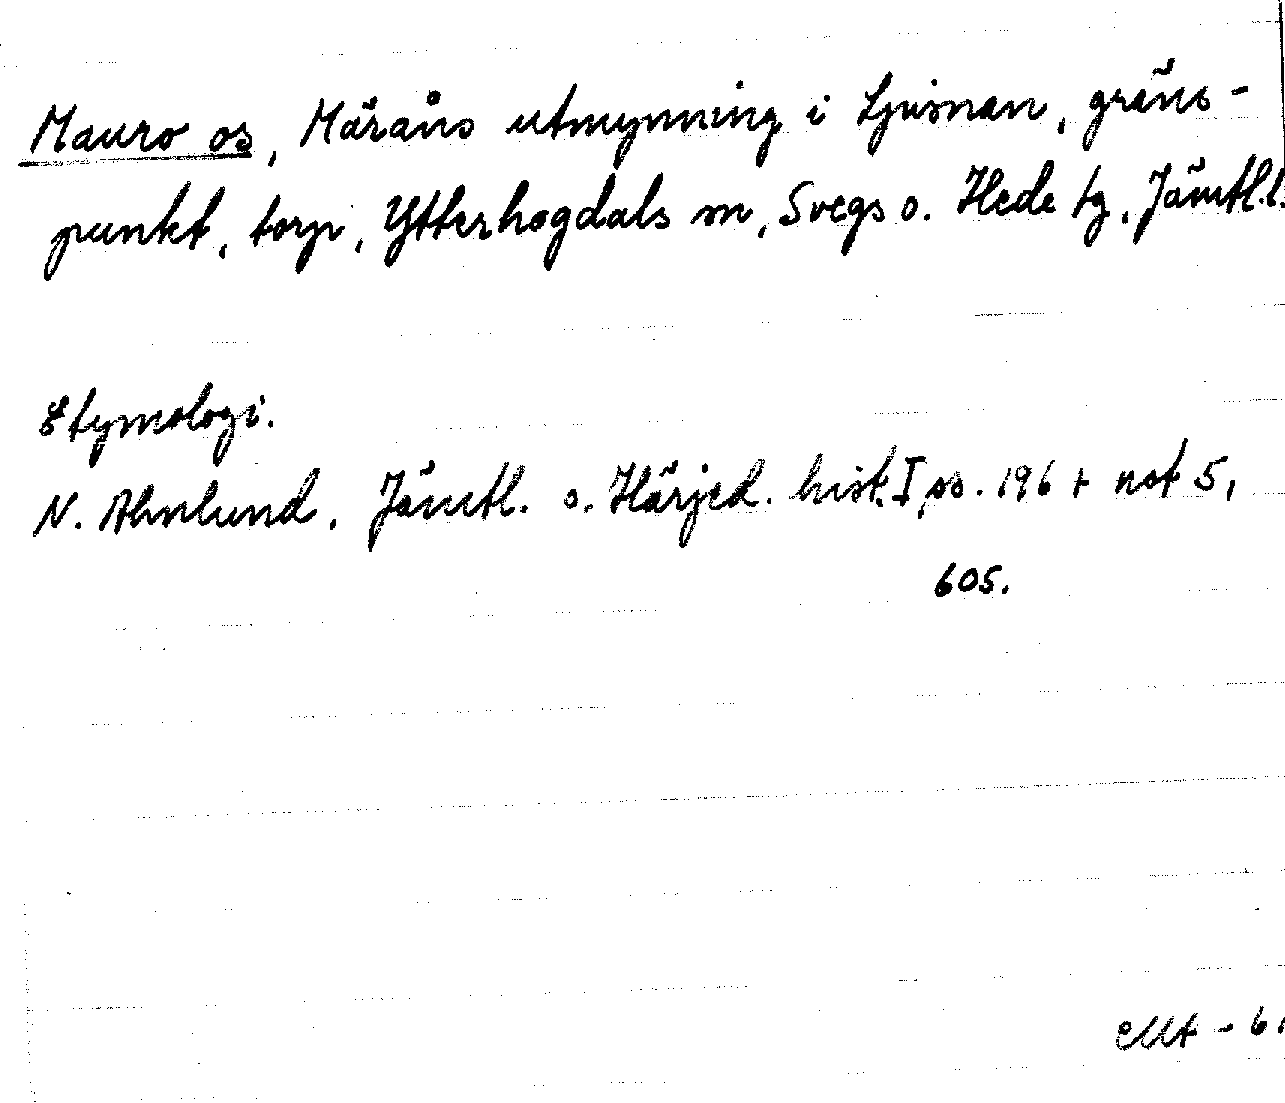 Mauro os, Märåns utmynning i Ljusnan, gräns-
punkt, torp, Ytterhogdals sn, Svegs o. Hede tg, Jämtl.l.
Etymologi.
N. Ahnlund, Jämtl. o. Härjed. hist. I, ss. 196 + not 5,
605.